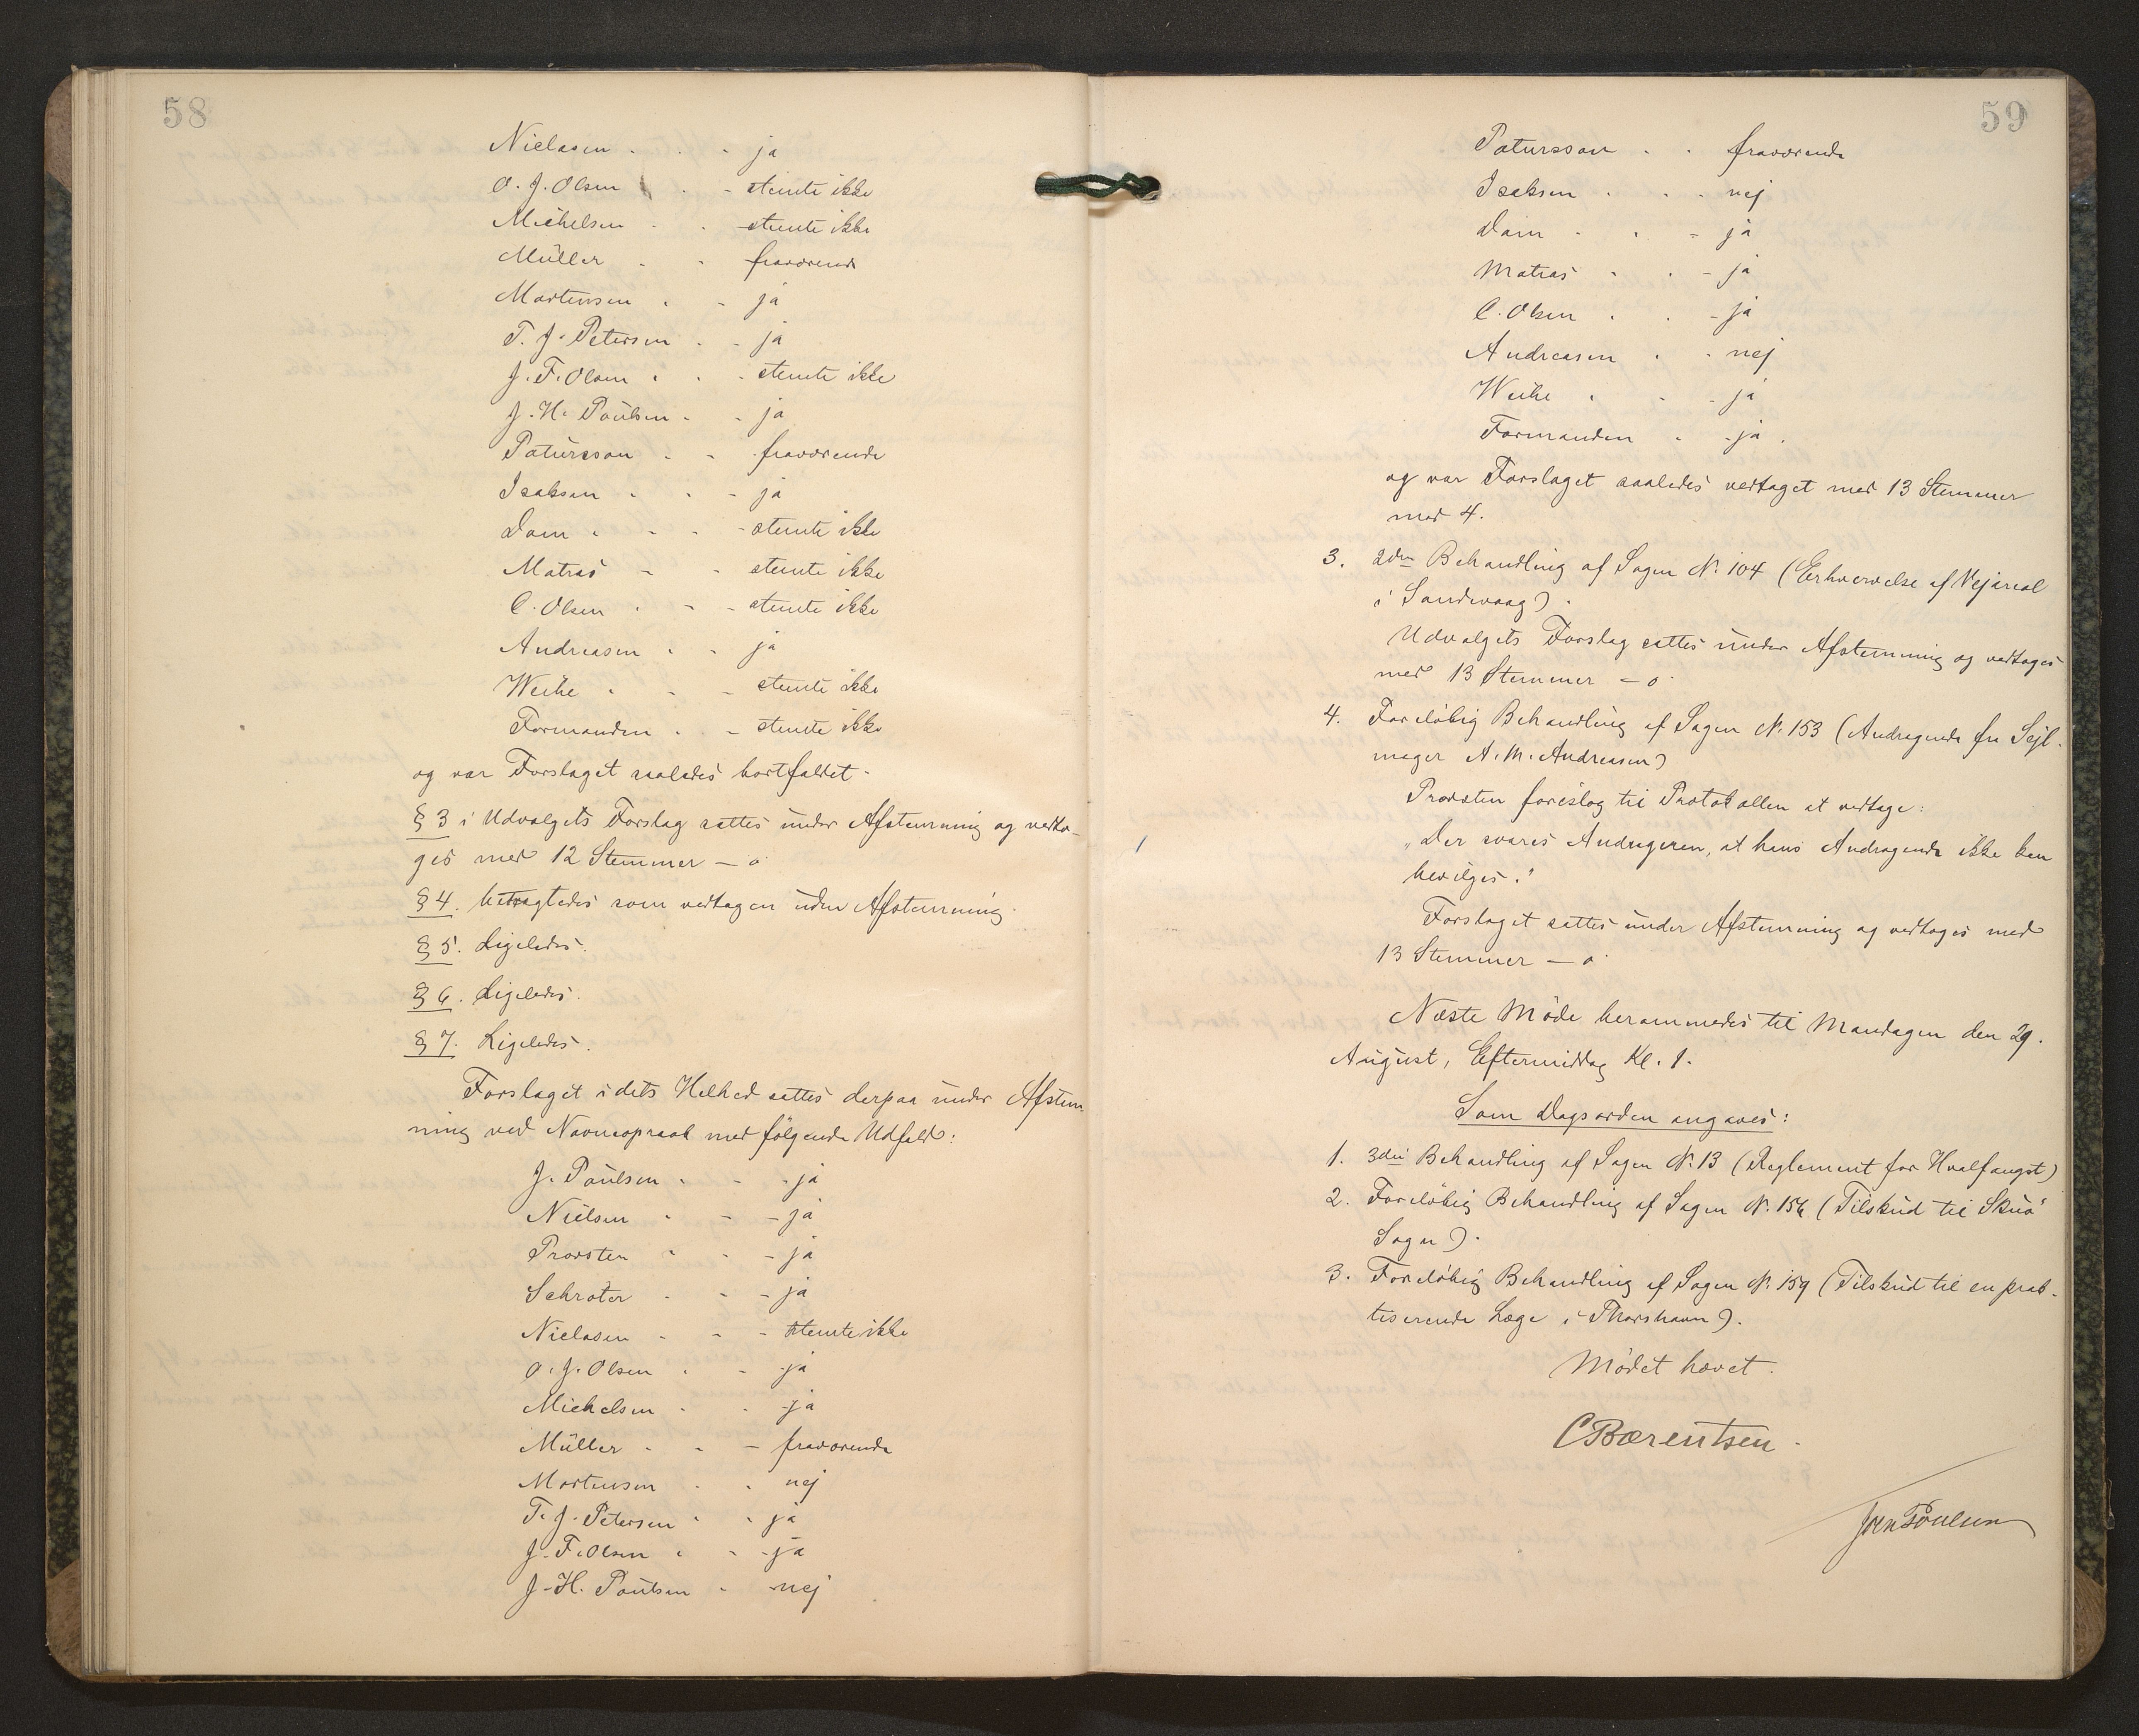 58
Nielasen - - - ja
O. J. Olsen - - stemte ikke
Michelsen - - stemte ikke
Müller - - fraværende
Mortensen - - ja
T. J. Petersen - - ja
J. F. Olsen - - - stemte ikke
J. H. Poulsen - - ja
Patursson - - fraværende
Isaksen - - - ja
Dam - - - stemte ikke
Matras - - stemte ikke
C. Olsen - - - stemte ikke
Andreasen - - ja
Weihe - - - stemte ikke
Formanden - - stemte ikke
og var Forslaget saaledes bortfaldet.
§ 3 i Udvalgets Forslag sattes under Afstemning og vedto-
ges med 12 Stemmer - 0.
§ 4. betragtedes som vedtagen uden Afstemning.
§ 5. Ligeledes.
§ 6. Ligeledes.
§ 7. Ligeledes.
Forslaget i dets Helhed sattes derpaa under Afstem
ning ved Navneopraab med følgende Udfald:
J. Poulsen - - - ja
Nielsen - - - ja
Provsten - - - ja
Schrøter - - - ja
Nielasen - - - stemte ikke
O. J. Olsen - - ja
Michelsen - - ja
Müller - - - fraværende
Mortensen - - nej
T. J. Petersen - - ja
J. F. Olsen - - - ja
J. H. Poulsen - nej
59
Patursson - - fraværende
Isaksen - - - nej
Dam - - - ja
Matras - - - ja
C. Olsen - - - ja
Andreasen - - nej
Weihe - - - ja
Formanden - - ja.
og var Forslaget saaledes vedtaget med 13 Stemmer
mod 4.
3. 2den Behandling af Sagen N. 104 (Erhvervelse af Vejareal
i Sandvaag).
Udvalgets Forslag sattes under Afstemning og vedtoges
med 13 Stemmer - 0.
4. Foreløbig Behandling af Sagen N. 153 (Andragende fra Sejl-
mager A. M. Andreasen)
Provsten foreslog til Protokollen at vedtage:
"Der svares Andrageren, at hans Andragende ikke kan
bevilges."
Forslaget sattes under Afstemning og vedtoges med
13 Stemmer - 0.
Næste Møde berammedes til Mandagen den 29.
August, Eftermiddag Kl. 1.
Som Dagsorden angaves:
1. 3die Behandling af Sagen N. 13 (Reglement for Hvalfangst)
2. Foreløbig Behandling af Sagen N. 156 (Tilskud til Skuø
Sogn).
3. Foreløbig Behandling af Sagen N. 159 (Tilskud til en prak-
tiserende Læge i Thorshavn).
Mødet hævet.
CBærentsen.
Joen Poulsen